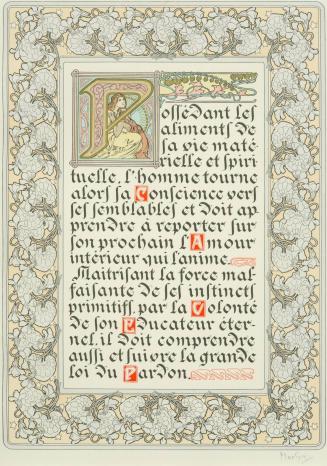 Possédant les
aliments de
sa vie maté-
rielle et spiri-
tuelle, l'homme tourne
alors sa Conscience vers
ses semblables et doit ap-
prendre à reporter sur
son prochain l'Amour
intérieur qui l'anime.
Maitrisant la force mal-
faisante de ses instincts
primitifs, par la Volonté
de son Educateur éter-
nel, il doit comprendre
aussi et suivre la grande
loi du Pardon.
Mucha